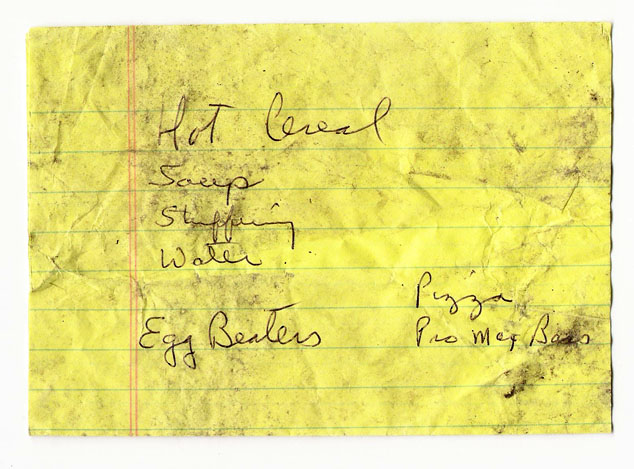 Hot Cereal
Soup
Stuffing
Water
Pizza
Egg Beaters
Pro Max Bars